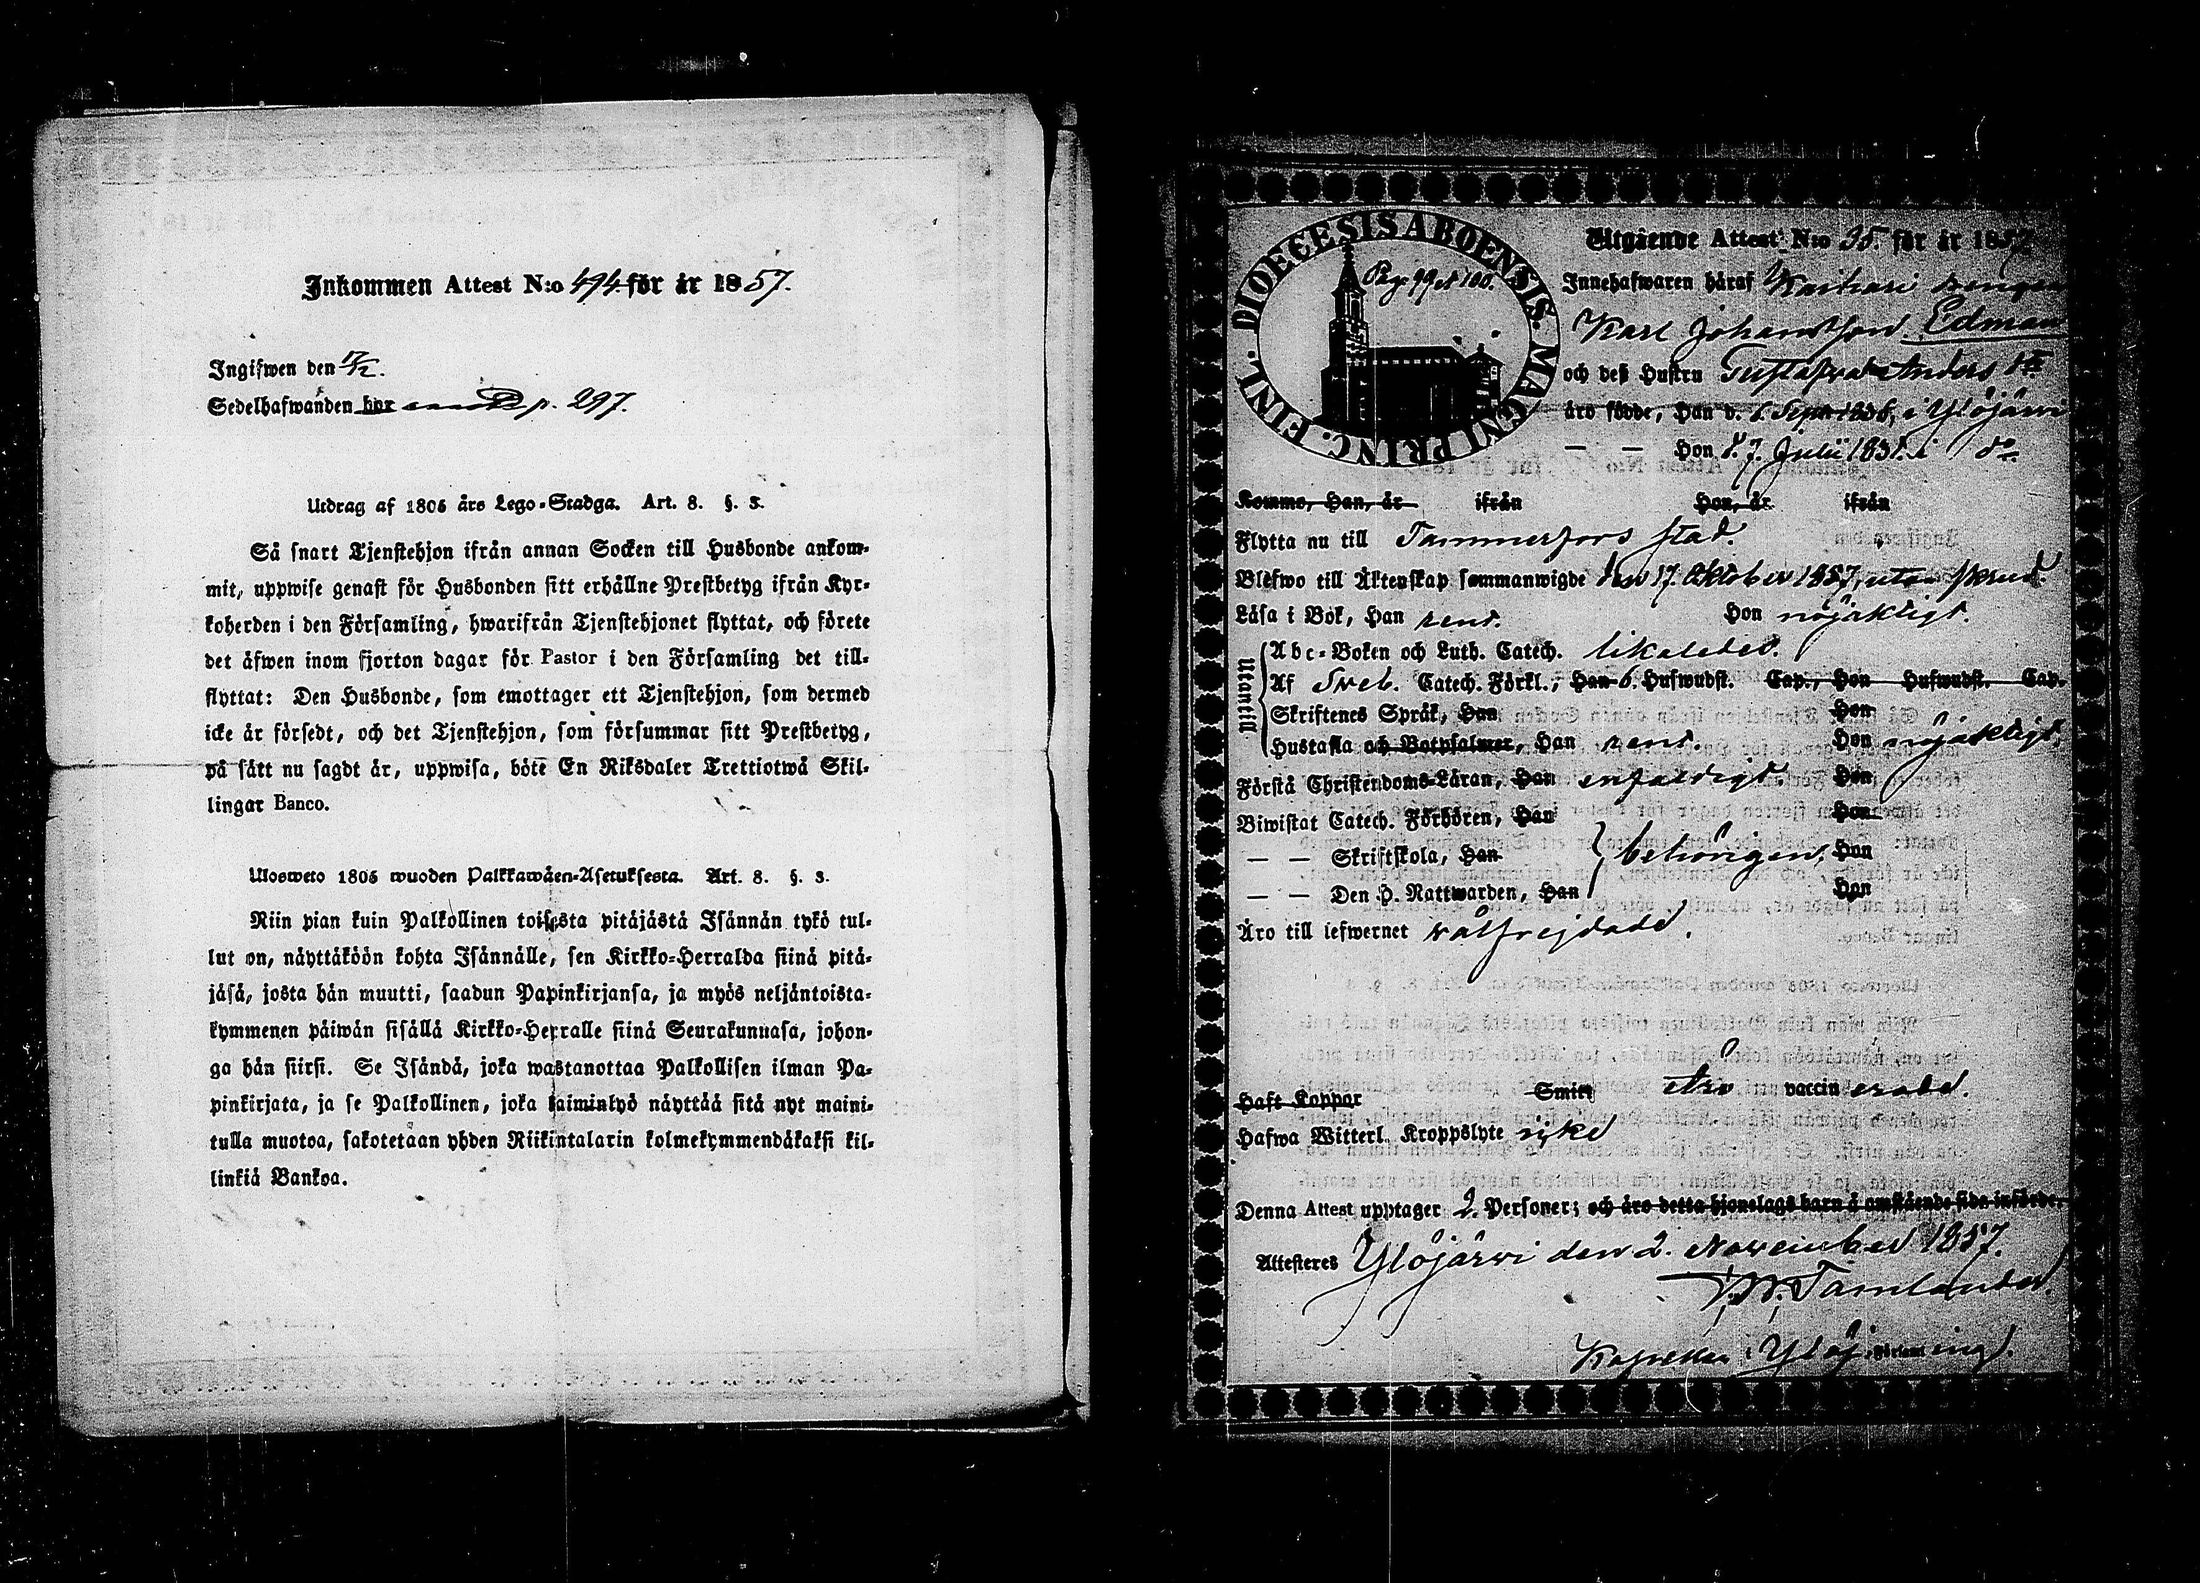 Inkommen Attest N:o 494 för år 1857.
Ingifwen den 17/12.
Sedelhafwanden bor p. 297.
Utdrag af 1805 års Lego-Stadga. Art. 8. §. 3.
Så snart Tjenstehjon ifrån annan Socken till Husbonde ankom-
mit, uppwise genast för Husbonden sitt erhållne Prestbetyg ifrån Kyr-
koherden i den Församling, hwarifrån Tjenstehjonet flyttat, och förete
det äfwen inom fjorton dagar för Pastor i den Församling det till-
flyttat: Den Husbonde, som emottager ett Tjenstehjon, som dermed
icke är försedt, och det Tjenstehjon, som försummar sitt Prestbetyg,
på sätt nu sagdt är, uppwisa, böte En Riksdaler Trettiotwå Skil-
lingar Banco.
Ulosweto 1805 wuoden Palkkawäen-Asetuksesta. Art. 8. §. 3.
Niin pian kuin Palkollinen toisesta pitäjästä Isännän tykö tul-
lut on, näyttäköön kohta Isännälle, sen Kirkko-Herralda siinä pitä-
jäsä, josta hän muutti, saadun Papinkirjansa, ja myös neljäntoista-
kymmenen päiwän sisällä Kirkko-Herralle siinä Seurakunnasa, johon-
ga hän siirsi. Se Isändä, joka wastanottaa Palkollisen ilman Pa-
pinkirjata, ja se Palkollinen, joka laiminlyö näyttää sitä nyt maini-
tulla muotoa, sakotetaan yhden Riikintalarin kolmekymmendäkaksi kil-
linkiä Bankoa.
DIOECESIS ABOENSIS. MAGNI PRINC. FINL.
Pag. 99 et 100.
Utgående Attest N:o 35. för år 1857
Innehafwaren häraf
Karl Johansson Edman
och deß Hustru Gustafva Anders dr
äro födde, Han d. 6 Sept. 1836, i Ylöjärvi
— — Hon d. 7. Julii 1831. i do
Kommo, Han, år ifrån Hon, år ifrån
Flytta nu till Tammerfors stad.
Blefwo till Äktenskap sammanwigde den 17. Oktober 1857, utan skrud.
Läsa i Bok, Han rent. Hon nöjaktigt.
Utantill
Abc-Boken och Luth. Catech. likaledes.
Af Sveb. Catech. Förkl., Han 6. Hufwudst. Cap., Hon Hufwudst. Cap.
Skriftenes Språk, Han Hon
Hustafla och Botpsalmer, Han rent. Hon nöjaktigt.
Förstå Christendoms-Läran, Han enfaldigt. Hon
Biwistat Catech. Förhören, Han Hon
— — Skriftskola, Han behörigen, Hon
— — Den H. Nattwarden, Han Hon
Äro till lefwernet välfrejdade.
Haft Koppor Smitt Äro vaccinerade.
Hafwa Witterl. Kroppslyte icke
Denna Attest upptager 2. Personer; och äro detta hjonelags barn å omstående sida införde.
Attesteres Ylöjärvi den 2. November 1857.
Tamlander.
i Ylöj. Församling.